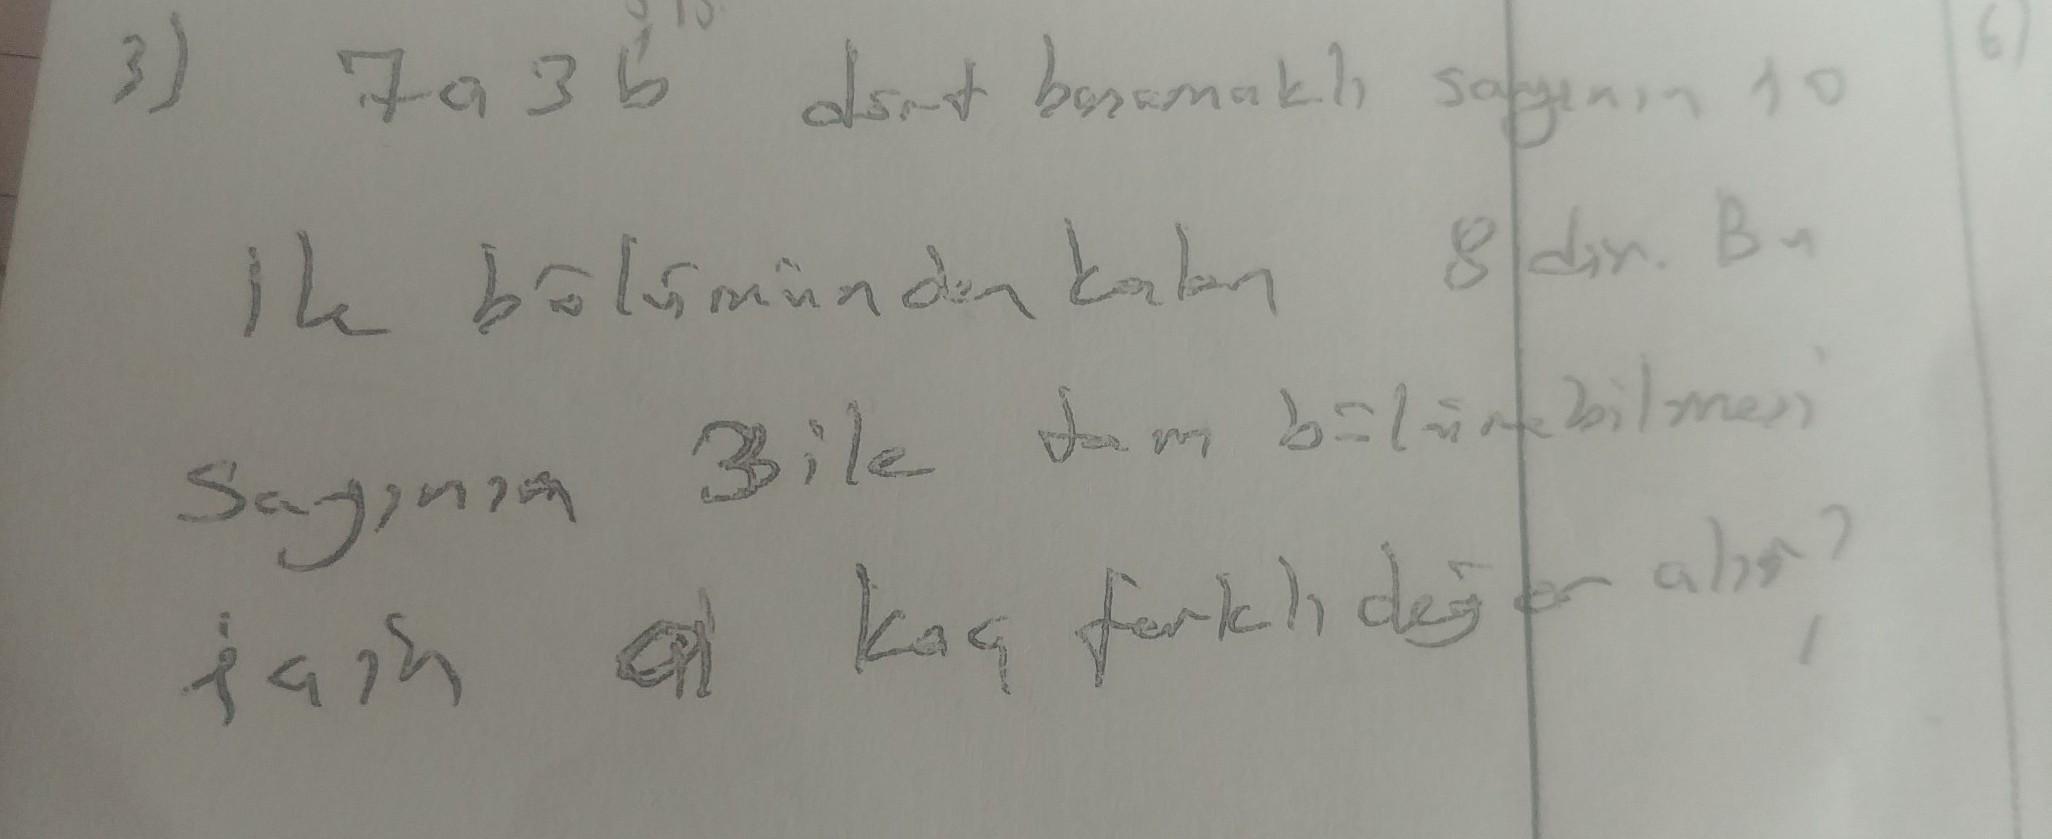 3) 7a3b dört basamaklı sayının 10
ile bölümünden kalan 8 dir. Bu
sayının 3 ile tam bölünebilmesi
için a kaç farklı değer alır?
6)